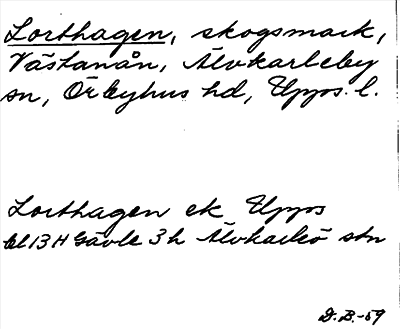 Lorthagen, skogsmark,
Västanån, Älvkarleby
sn, Örbyhus hd, Upps. l.
Lorthagen ek Upps
bl 13 H Gävle 3 h Älvkarleö stn
D.B.-59